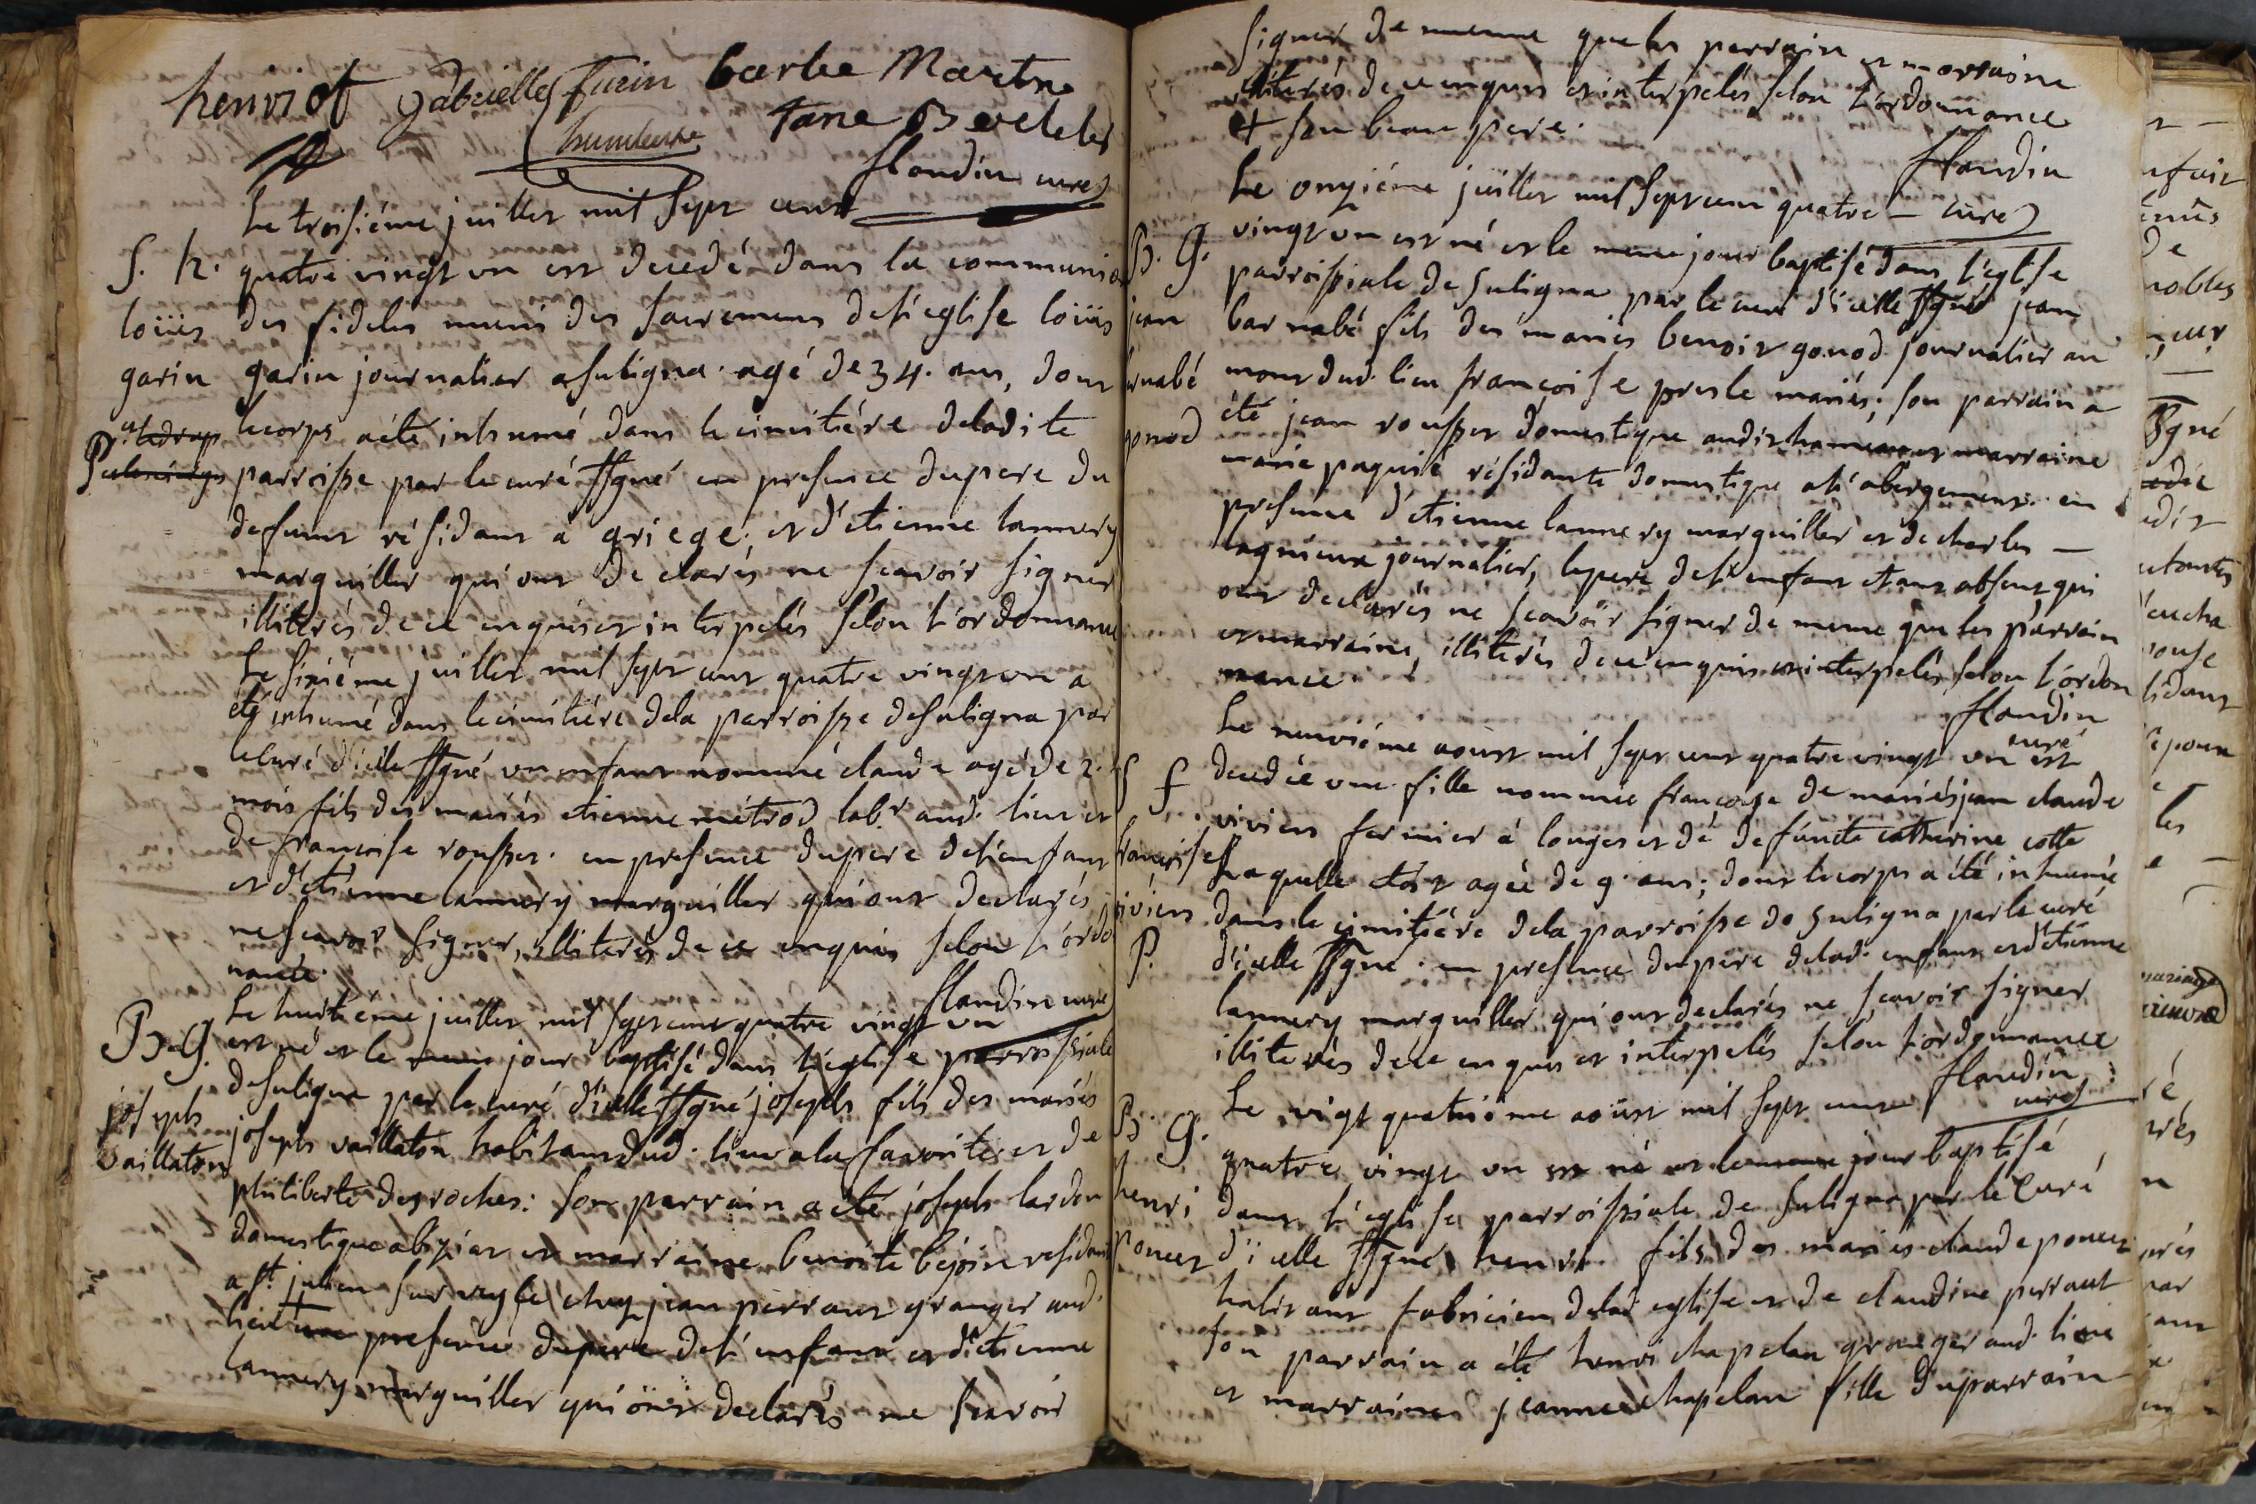 henriot gabrielle furin barbe Maretne
humbert tane Beretetes
flandin curé
Le troisiéme juillet mil sept cent
S. h. quatre vingt un est decedé dans la communion
loüis des fideles muni des sacremens de l'eglise loüis
garin garin journalier a suligna agé de 34. ans, dont
a. ledrap le corps a été inhumé dans le cimitiére de ladite
P parroisse par le curé ssgné en presence du pere du
defunt résidant a griege; et d'etienne lannery
marguiller qui ont declarés ne scavoir signer
illiterés de ce enquis et interpelés selon l'ordonnance
Le sixiéme juillet mil sept cent quatre vingt un a
été inhumé dans le cimitiére de la parroisse de suligna par
le curé d'icelle ssgné un enfant nommé claude agé de 2.
mois fils des mariés etienne métrod lab.r aud. lieu et
de francoise rousset. en presence du pere de l'enfant
et d'etienne lannery marguiller qui ont declarés
ne scavoir signer, illiterés de ce enquis selon l'ordo
nance.
flandin curé
Le huitiéme juillet mil sept cent quatre vingt un
B. G. est né et le meme jour baptisé dans l'eglise parroissiale
de suligna par le curé d'icelle ssgné joseph fils des mariés
joseph joseph vaillaton habitant dud. lieu a la favorite et de
vaillaton philiberte desroches: son parrain a été joseph lardon
domestique a biziat et marraine benoite bejoin residant
a st. julien sur veyle chez jean perraut granger aud.
lieu en presence du pere de l'enfant et d'etienne
lannery marguiller qui ont declarés ne scavoir
signer de meme que les parrain et marraine
illiterés de ce enquis et interpelés selon l'ordonnance
et son beau pere.
flandin
Le onziéme juillet mil sept cent quatre — curé
B. G. vingt un est né et le meme jour baptisé dans l'eglise
parroissiale de suligna par le curé d'icelle ssgné jean
jean barnabé fils des mariés benoit gonod journalier au
rnabé mont dud. lieu francoise presle mariés; son parrain a
gonod été jean rousset domestique audit hameau et marraine
marie paquié résidante domestique a l'abergement. en
presence d'etienne lannery marguiller et de charles —
lagnieux journalier, le pere de l'enfant etant absent qui
ont declarés ne scavoir signer de meme que les parrain
et marraine, illiterés de ce enquis et interpelés selon l'ordon
nance.
flandin
curé
Le neuviéme aoust mil sept cent quatre vingt un est
S f decedée une fille nommée francoise de mariés jean claude
viviens fermier à longes et de defunte catherine cotte
francoise Laquelle étoit agée de 9. ans; dont le corps a été inhumé
iviens dans le cimitiére de la parroisse de suligna par le curé
P. d'icelle ssgné. en presence du pere de lad. enfant et d'etienne
lannery marguiller qui ont declarés ne scavoir signer
illiterés de ce enquis et interpelés selon l'ordonnance
flandin
curé
Le vigt quatriéme aoüst mil sept cent
B. G. quatre vingt un est né et le meme jour baptisé
henri dans l'eglise parroissiale de suligna par le curé
poncet d'icelle ssgné henri fils des mariés claude poncet
habitant fabricien de lad. eglise et de claudine perraut
son parrain a été henri chapelan granger aud. lieu
et marraine jeanne chapelan fille du parrain